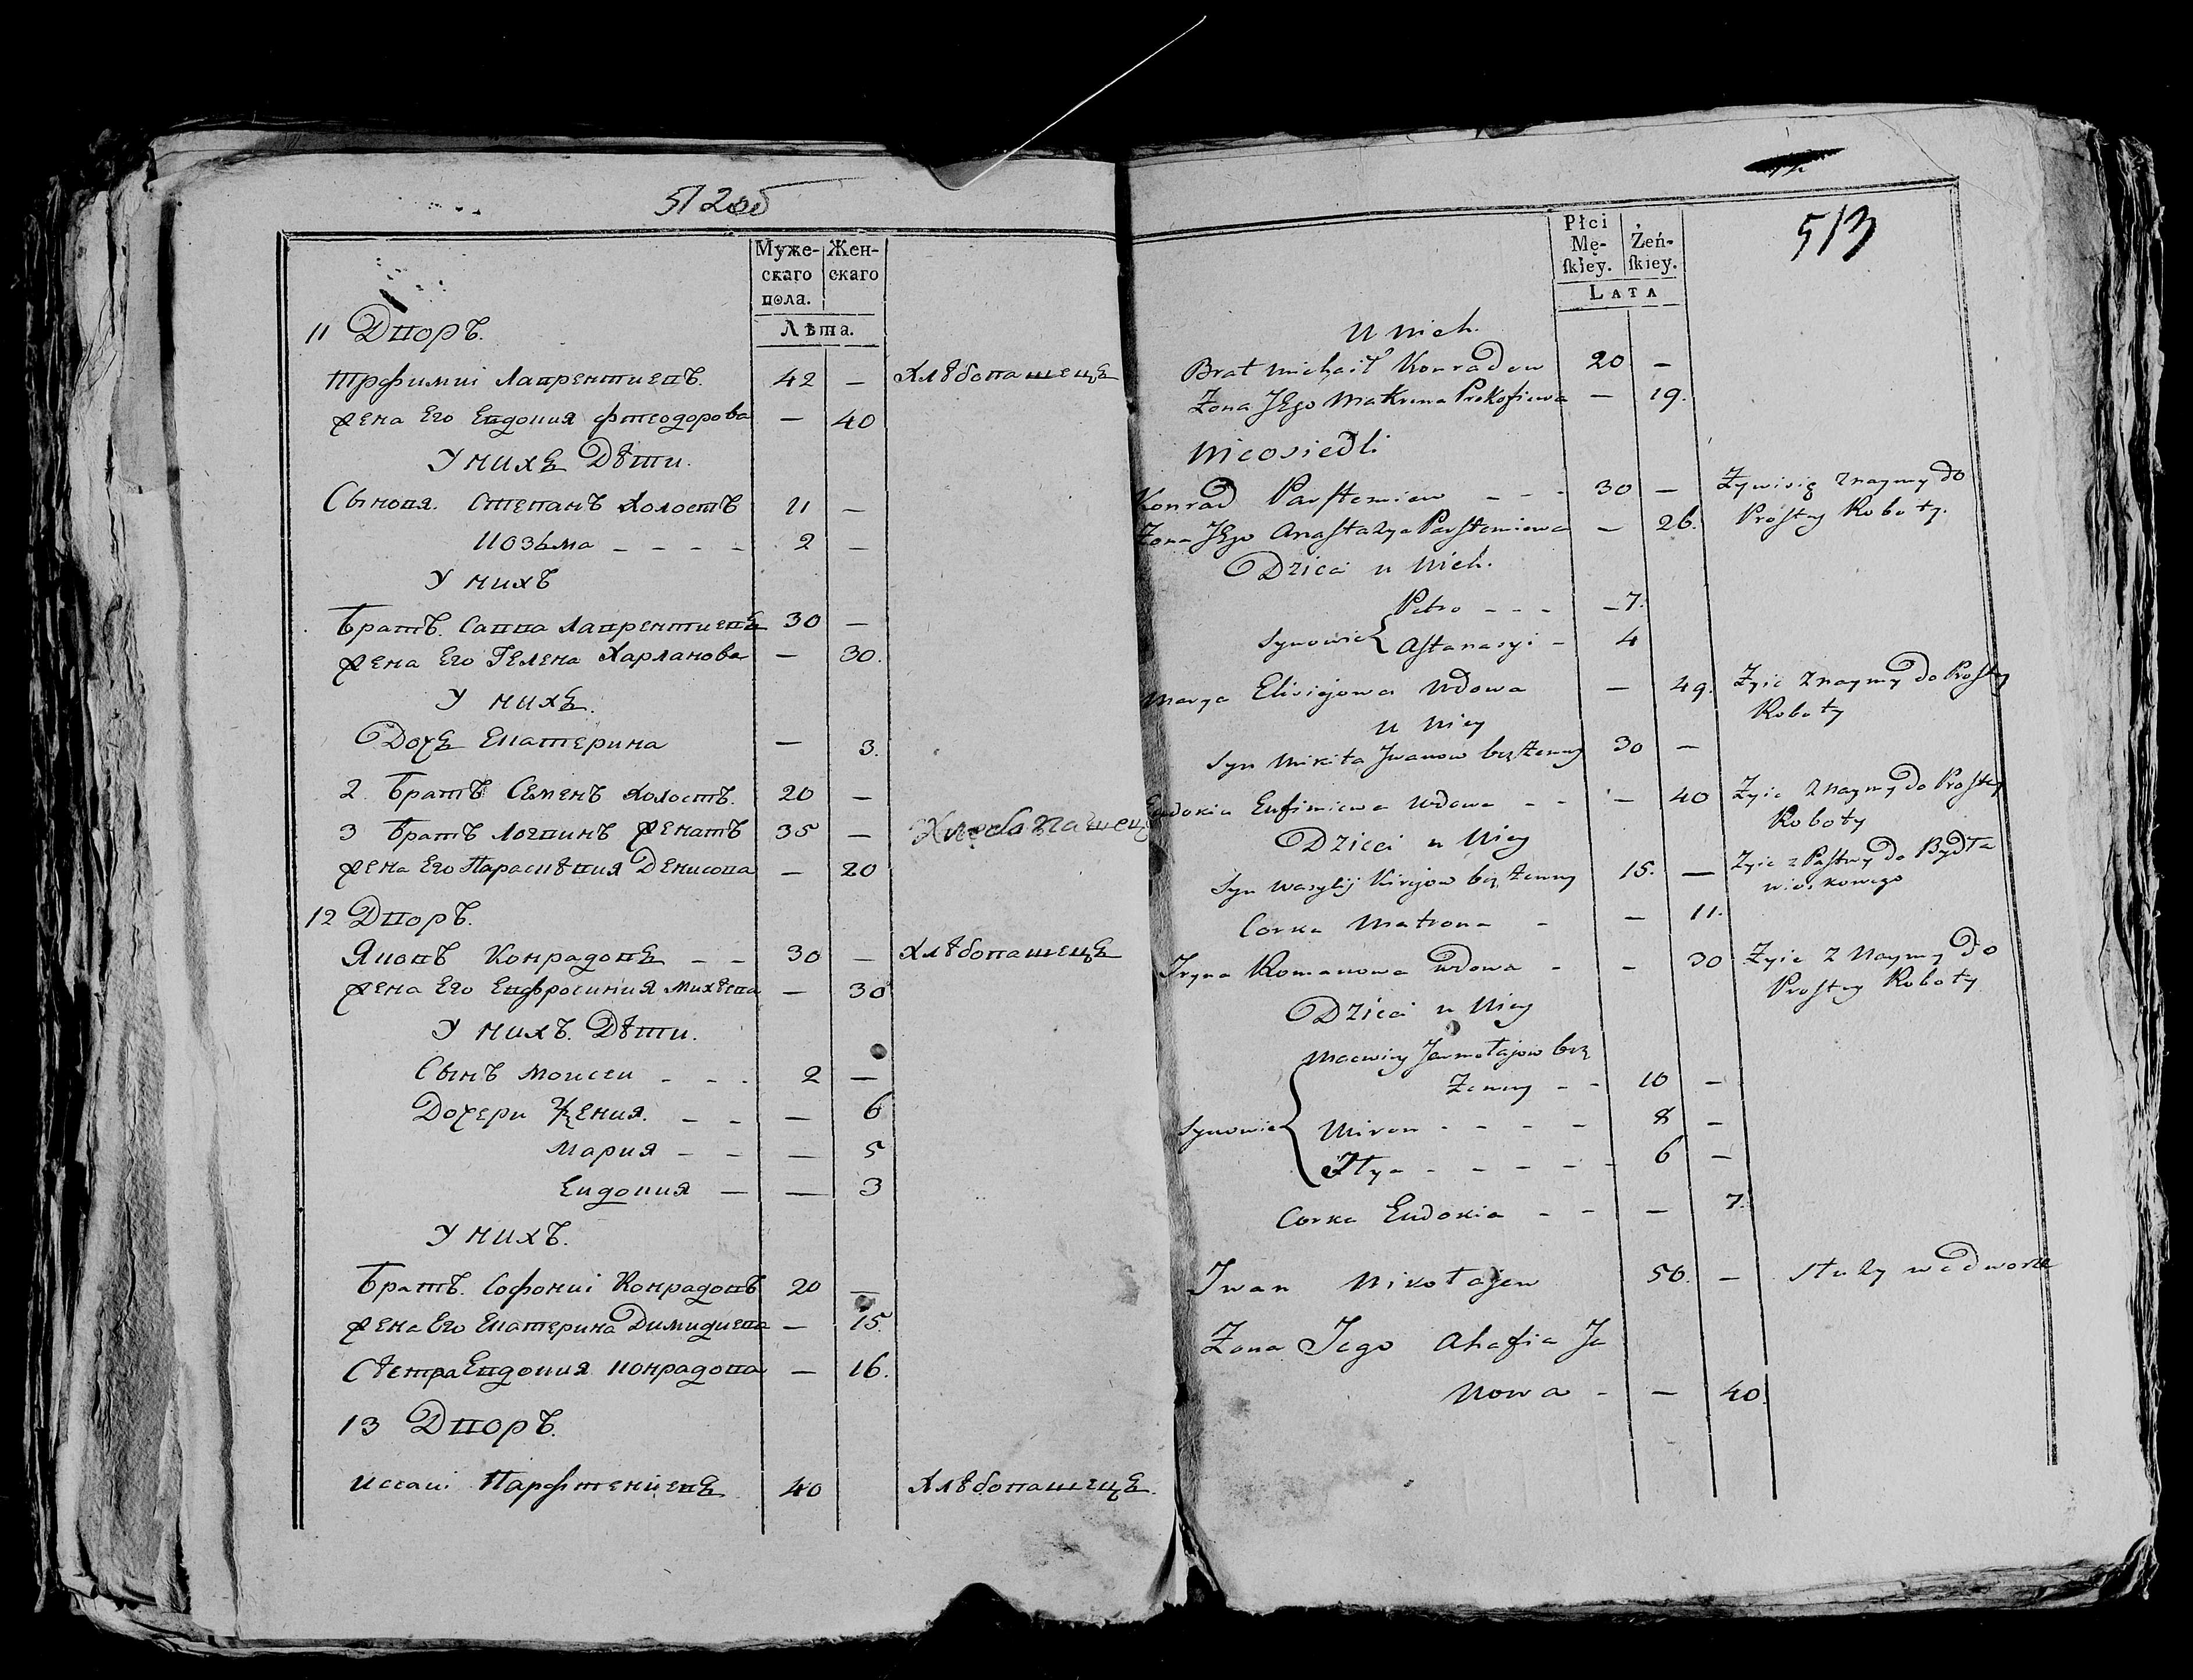 512об
Муже-
скаго
пола.
Жен-
скаго
Лѣта.
11 Дворъ.
Трофимиі Лаврентиевъ. 42 — Хлѣбопашецъ
жена Его Евдокия Фтеодорова — 40
У нихъ Дѣти.
Сыновя. Степанъ холостъ 11 —
Козьма - - - - 2 —
У нихъ
Братъ. Савва Лаврентиевъ 30 —
жена Его Гелена Харланова — 30.
У нихъ.
Дочъ Екатерина — 3.
2. Братъ Семенъ холостъ. 20 —
3 Братъ Логвинъ женатъ 35 — Хлебопашец
жена Его Параскѣвия Денисова — 20
12 Дворъ.
Яковъ Конрадовъ - - 30 — Хлѣбопашецъ
жена Его Евфросиния Михѣева — 30
У нихъ. Дѣти.
Сынъ Моисеи - - - 2 —
Дочери Ѯения. - - — 6
Мария - - — 5
Евдокия — — 3
У нихъ.
Братъ. Софониі Конрадовъ 20 —
жена Его Екатерина Димидиева — 15.
Сѣстра Евдокия Конрадова — 16.
13 Дворъ.
Исааиі Парфтениевъ 40 Хлѣбопашецъ.
513
Płci
Mę-
ſkiey.
Żeń-
ſkiey.
LATA
U nich.
Brat Michaił Konradow 20 —
Zona JEgo Makryna Prokofiewa — 19.
Nieosiedli
Konrad Parftemiew - - - 30 — Zywi się z naymy do
Prostey Roboty.
Zona JEgo Anastazya Parftemiewa — 26.
Dzieci u Nich.
Petro - - - — 7.
Synowie Aftanasyi - 4
Marya Elisiejowa Wdowa — 49. Zyie z naymy do Prostey
Roboty
U Niey
Syn Mikita Jwanow bez Zenny 30 —
Eudokia Eufimiewa Wdowa - - — 40 Zyie z naymy do Prostey
Roboty
Dzieci u Niey
Syn Wasylij Kirejow bez Zenny 15. — Zyie z Pastwy do Bydła
wioskowego
Corka Matrona - — 11.
Jryna Romanowa Wdowa - — 30 Zyie z Naymy Do
Prostey Roboty
Dzieci u Niey
Macwiey Jermołajow bez
Zenny - - 10 —
Synowie Miron - - - - 8 —
Jłya - - - - - 6 —
Corka Eudokia - - — 7.
Jwan Mikołajew 50. — Służy we dworze
Zona Jego Ahafia Ja
nowa - — 40.